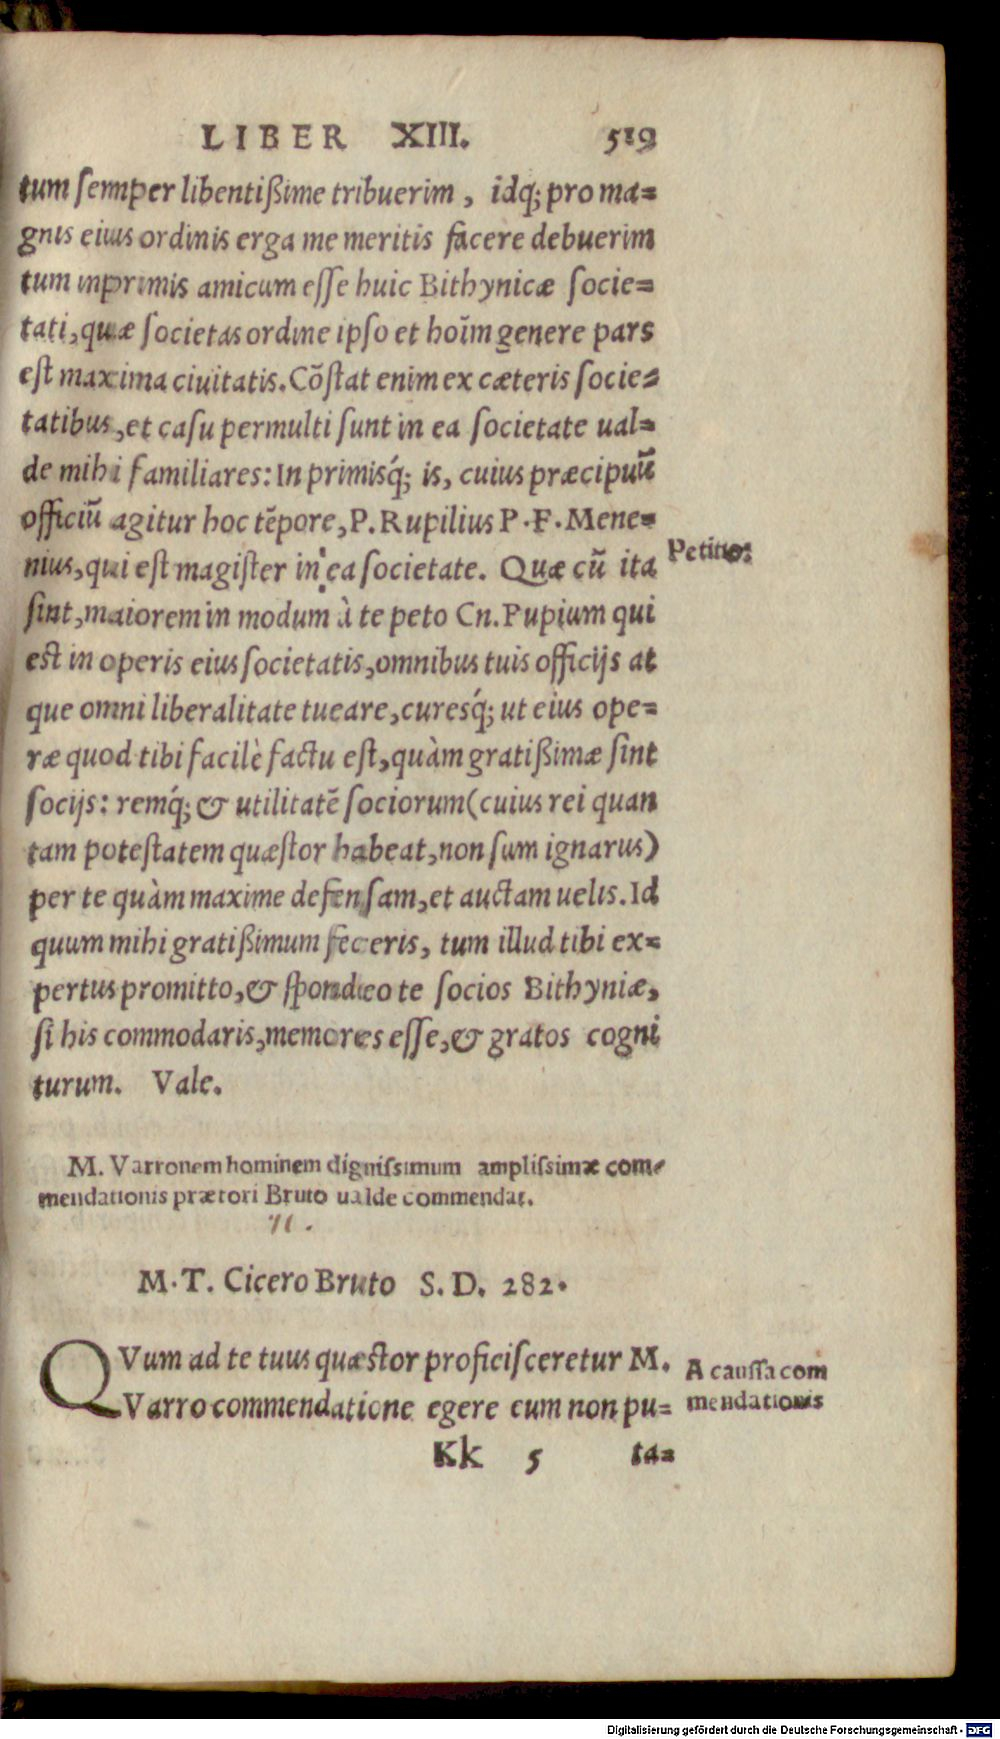 LIBER XIII. 519
tum semper libentißime tribuerim, idq; pro ma=
gnis eius ordinis erga me meritis facere debuerim
tum inprimis amicum esse huic Bithynicæ socie=
tati, quæ societas ordine ipso et hoĩm genere pars
est maxima ciuitatis. Cõstat enim ex cæteris socie=
tatibus, et casu permulti sunt in ea societate ual=
de mihi familiares: In primisq́; is, cuius præcipuũ
officiũ agitur hoc tẽpore, P. Rupilius P. F. Mene=
nius, qui est magister in ea societate. Quæ cũ ita
Petitio:
sint, maiorem in modum à te peto Cn. Pupium qui
est in operis eius societatis, omnibus tuis officijs at
que omni liberalitate tueare, curesq́; ut eius ope=
ræ quod tibi facilè factu est, quàm gratißimæ sint
socijs: remq́; & utilitatẽ sociorum (cuius rei quan
tam potestatem quæstor habeat, non sum ignarus)
per te quàm maxime defensam, et auctam uelis. Id
quum mihi gratißimum feceris, tum illud tibi ex=
pertus promitto, & spondeo te socios Bithyniæ,
si his commodaris, memores esse, & gratos cogni
turum. Vale.
M. Varronem hominem dignissimum amplissimæ com=
mendationis prætori Bruto ualde commendat.
11.
M. T. Cicero Bruto S. D. 282.
QVum ad te tuus quæstor proficisceretur M.
A caussa com
Varro commendatione egere eum non pu=
mendationis
Kk 5 ta=
Digitalisierung gefördert durch die Deutsche Forschungsgemeinschaft - DFG